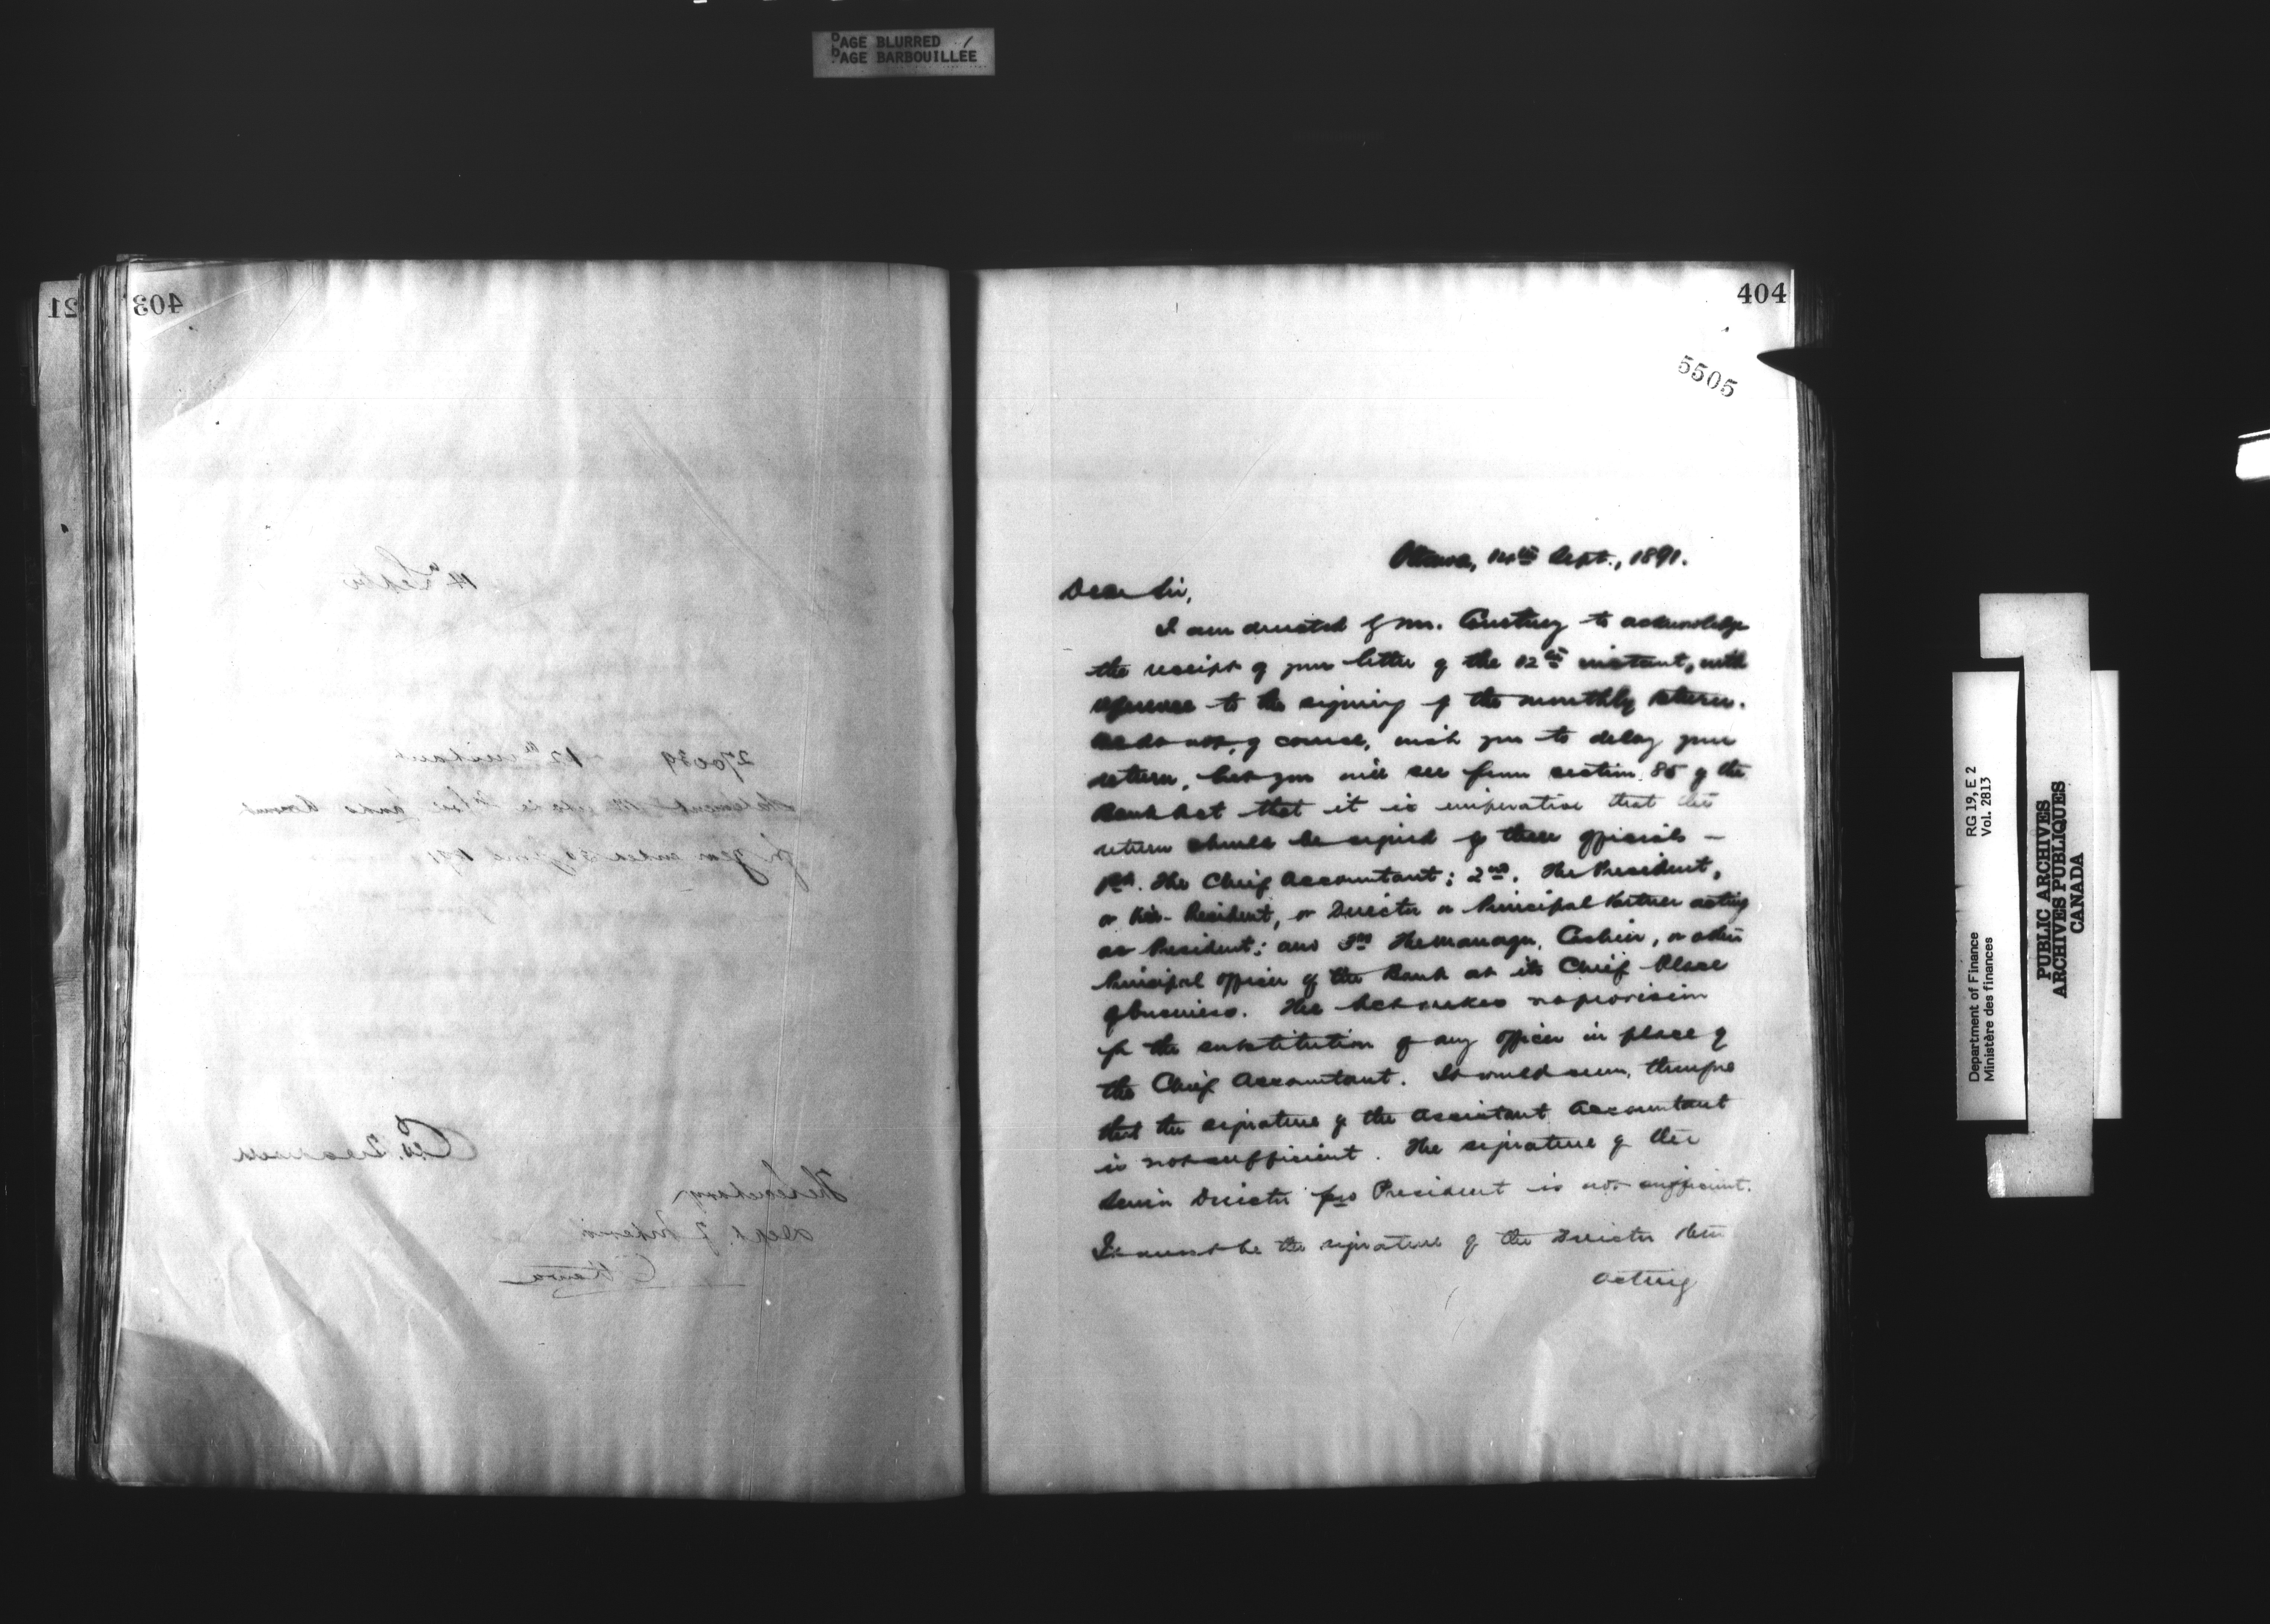 PAGE BLURRED
PAGE BARBOUILLÉE
21
403
14th Septr
270039 12th instant
Statement
for year ended 30 June 1891
The Secretary
Dept. of Interior
Ottawa
404
5505
Ottawa, 14th Sept., 1891.
Dear Sir,
I am directed by Mr. Courtney to acknowledge
the receipt of your letter of the 12th instant, with
reference to the signing of the monthly return.
We do not, of course, wish you to delay your
return, but you will see from section 85 of the
Bank Act that it is imperative that the
return should be signed by three officials —
1st. The Chief Accountant; 2nd. The President,
or Vice-President, or Director or Principal Partner acting
as President; and 3rd The Manager, Cashier, or other
Principal Officer of the Bank at its Chief Place
of business. The Act makes no provision
for the substitution of any officer in place of
the Chief Accountant. It would seem, therefore
that the signature of the Assistant Accountant
is not sufficient. The signature of the
Senior Director pro President is not sufficient.
It must be the signature of the Director then
acting
Department of Finance
Ministère des finances
RG 19, E 2
Vol. 2813
PUBLIC ARCHIVES
ARCHIVES PUBLIQUES
CANADA